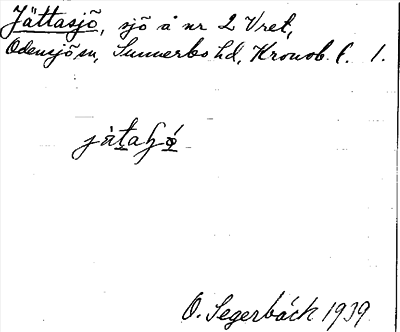 Jättasjõ, sjõ å nr 2 Vret,
Odensjö sn, Sunnerbo hd, Kronob. l. 1.
O. Segerbäck 1939